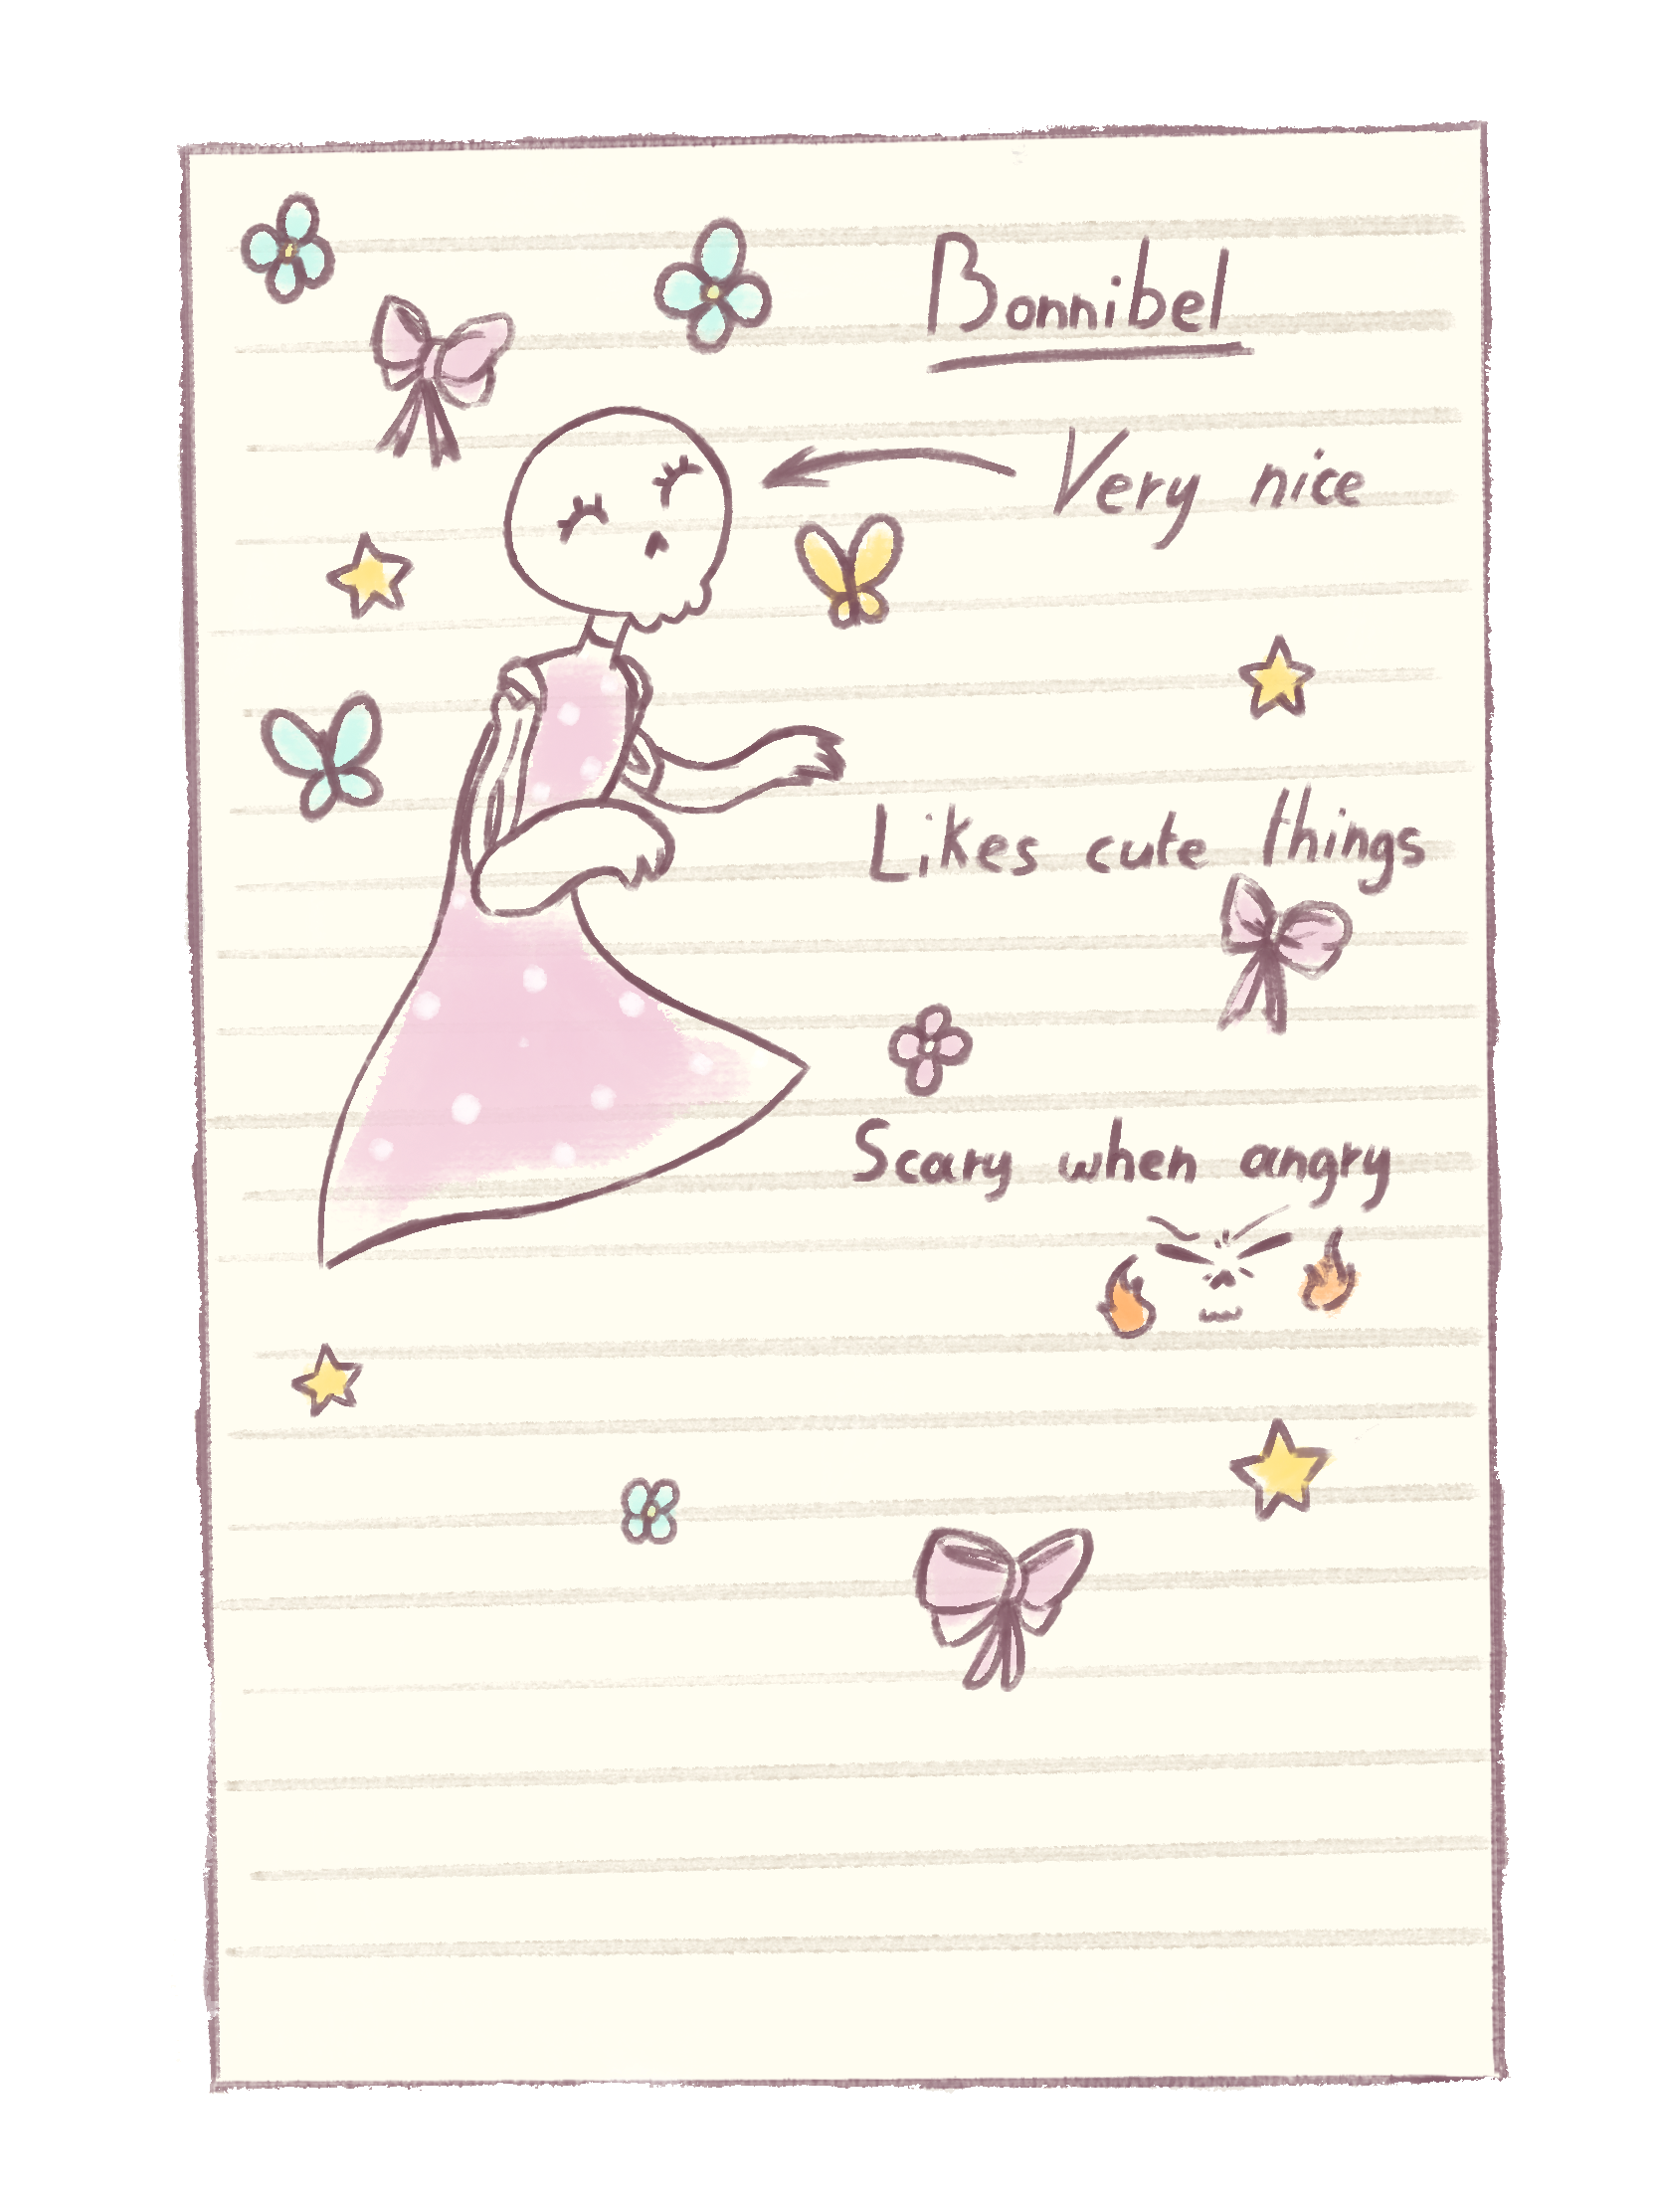 Bonnibel
Very nice
Likes cute things
Scary when angry